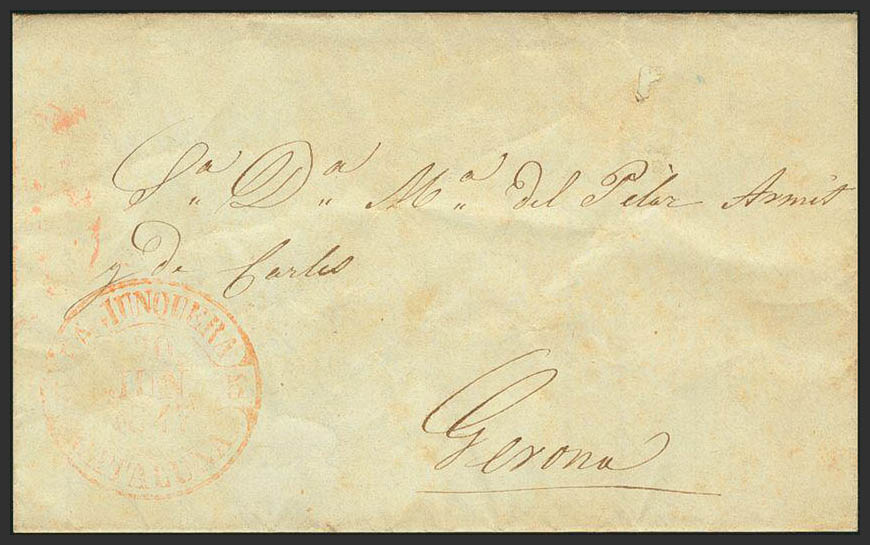 Sª Dª Mª del Pilar Armit
y de Carles
LA JUNQUERA
20
JUN
CATALUÑA
Gerona